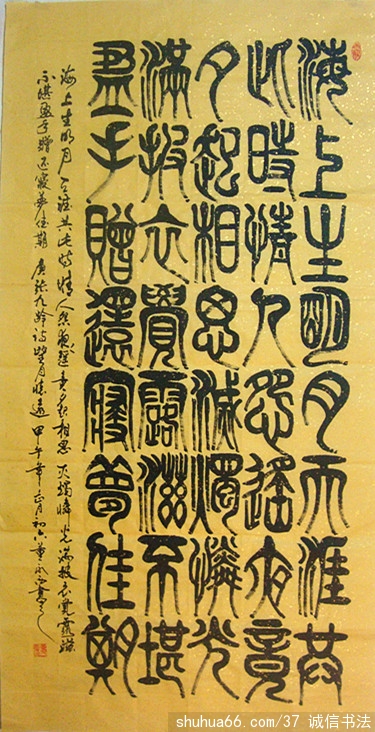 海上生明月天涯共
此時情人怨遙夜竟
夕起相思滅燭憐光
滿披衣覺露滋不堪
盈手贈還寢夢佳期
海上生明月天涯共此時情人怨遙夜竟夕起相思灭燭憐光满披衣覺露滋
不堪盈手贈还寢夢佳期 唐張九齡詩望月懷遠 甲午年正月初六董永
shuhua66.com/37 诚信书法